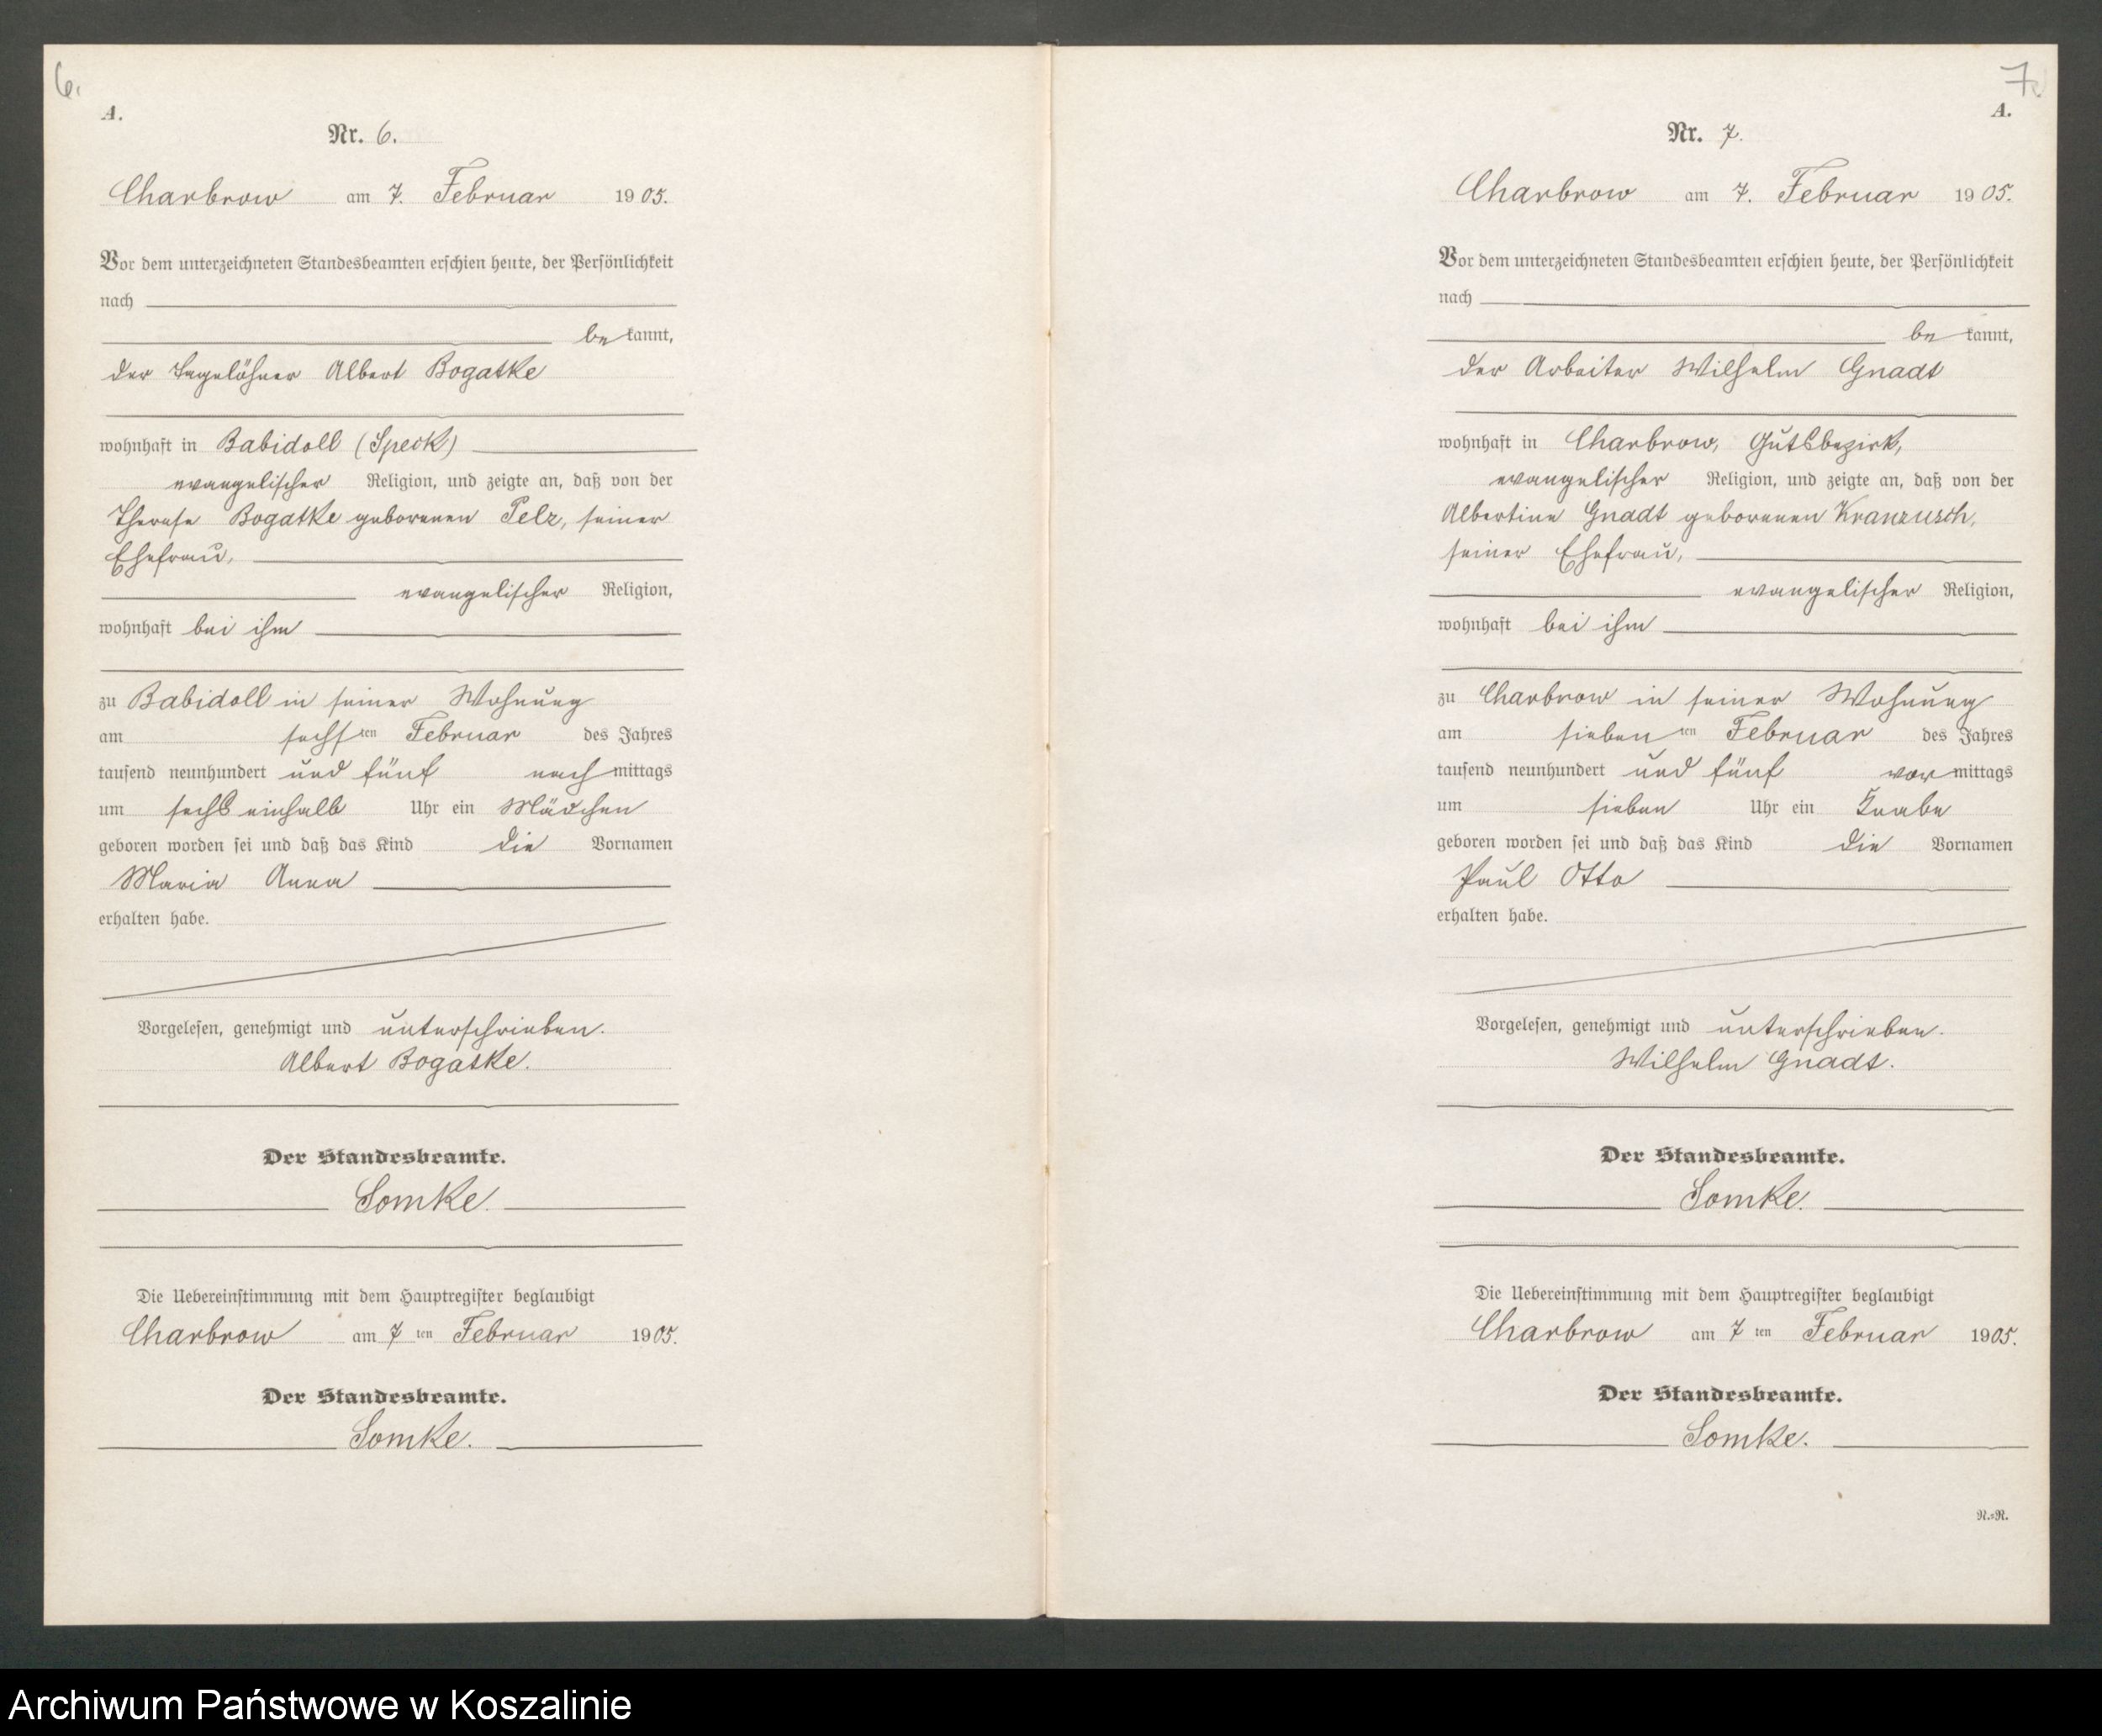 6.
A.
Nr. 6.
Charbrow am 7. Februar 1905.
Vor dem unterzeichneten Standesbeamten erschien heute, der Persönlichkeit
nach
be kannt,
der Tagelöhner Albert Bogatke
wohnhaft in Babidoll (Speck)
evangelischer Religion, und zeigte an, daß von der
Therese Bogatke geborenen Pelz, seiner
Ehefrau,
evangelischer Religion,
wohnhaft bei ihm
zu Babidoll in seiner Wohnung
am sechsten Februar des Jahres
tausend neunhundert und fünf nachmittags
um sechs einhalb Uhr ein Mädchen
geboren worden sei und daß das Kind die Vornamen
Maria Anna
erhalten habe.
Vorgelesen, genehmigt und unterschrieben.
Albert Bogatke.
Der Standesbeamte.
Somke.
Die Uebereinstimmung mit dem Hauptregister beglaubigt
Charbrow am 7 ten Februar 1905.
Der Standesbeamte.
Somke.
7.
A.
Nr. 7.
Charbrow am 7. Februar 1905.
Vor dem unterzeichneten Standesbeamten erschien heute, der Persönlichkeit
nach
be kannt,
der Arbeiter Wilhelm Gnadt
wohnhaft in Charbrow, Gutsbezirk,
evangelischer Religion, und zeigte an, daß von der
Albertine Gnadt geborenen Kranzusch,
seiner Ehefrau,
evangelischer Religion,
wohnhaft bei ihm
zu Charbrow in seiner Wohnung
am siebenten Februar des Jahres
tausend neunhundert und fünf vormittags
um sieben Uhr ein Knabe
geboren worden sei und daß das Kind die Vornamen
Paul Otto
erhalten habe.
Vorgelesen, genehmigt und unterschrieben.
Wilhelm Gnadt.
Der Standesbeamte.
Somke.
Die Uebereinstimmung mit dem Hauptregister beglaubigt
Charbrow am 7 ten Februar 1905.
Der Standesbeamte.
Somke.
N.=N.
Archiwum Państwowe w Koszalinie